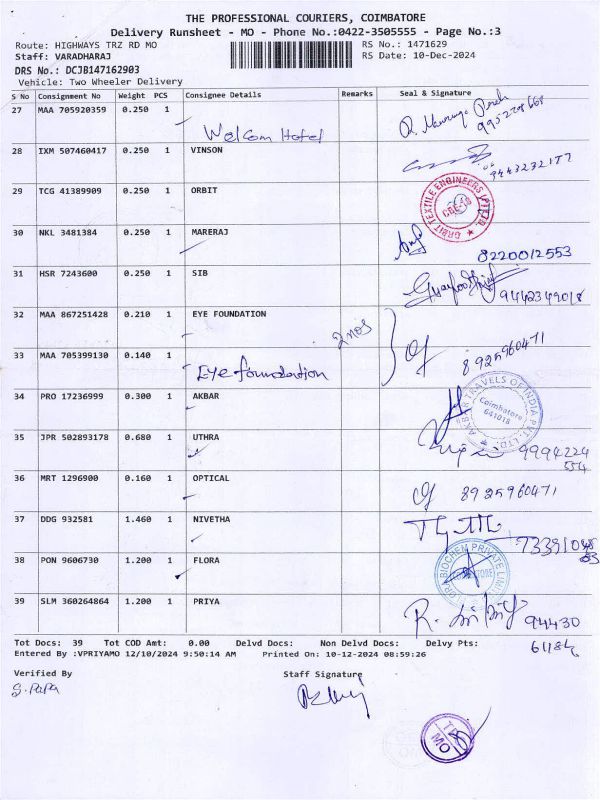 THE PROFESSIONAL COURIERS, COIMBATORE
Delivery Runsheet - MO - Phone No.:0422-3505555 - Page No.:3
Route: HIGHWAYS TRZ RD MO RS No.: 1471629
Staff: VARADHARAJ RS Date: 10-Dec-2024
DRS No.: DCJB147162903
Vehicle: Two Wheeler Delivery
S No Consignment No Weight PCS Consignee Details Remarks Seal & Signature
27 MAA 705920359 0.250 1
Welcom Hotel
28 IXM 507460417 0.250 1 VINSON
29 TCG 41389909 0.250 1 ORBIT
ORBIT TEXTILE ENGINEERS (P) LTD
CBE-18
30 NKL 3481384 0.250 1 MARERAJ
8220012553
31 HSR 7243600 0.250 1 SIB
9442349018
32 MAA 867251428 0.210 1 EYE FOUNDATION
2 nos
33 MAA 705399130 0.140 1
Eye foundation
8925960471
34 PRO 17236999 0.300 1 AKBAR
AKBAR TRAVELS OF INDIA PVT. LTD.
Coimbatore
641018
35 JPR 502893178 0.680 1 UTHRA
9994224
554
36 MRT 1296900 0.160 1 OPTICAL
8925960471
37 DDG 932581 1.460 1 NIVETHA
38 PON 9606730 1.200 1 FLORA
BIOCHEM PRIVATE LIMITED
39 SLM 360264864 1.200 1 PRIYA
94430
61184
Tot Docs: 39 Tot COD Amt: 0.00 Delvd Docs: Non Delvd Docs: Delvy Pts:
Entered By :VPRIYAMO 12/10/2024 9:50:14 AM Printed On: 10-12-2024 08:59:26
Verified By Staff Signature
S. Papa
MO